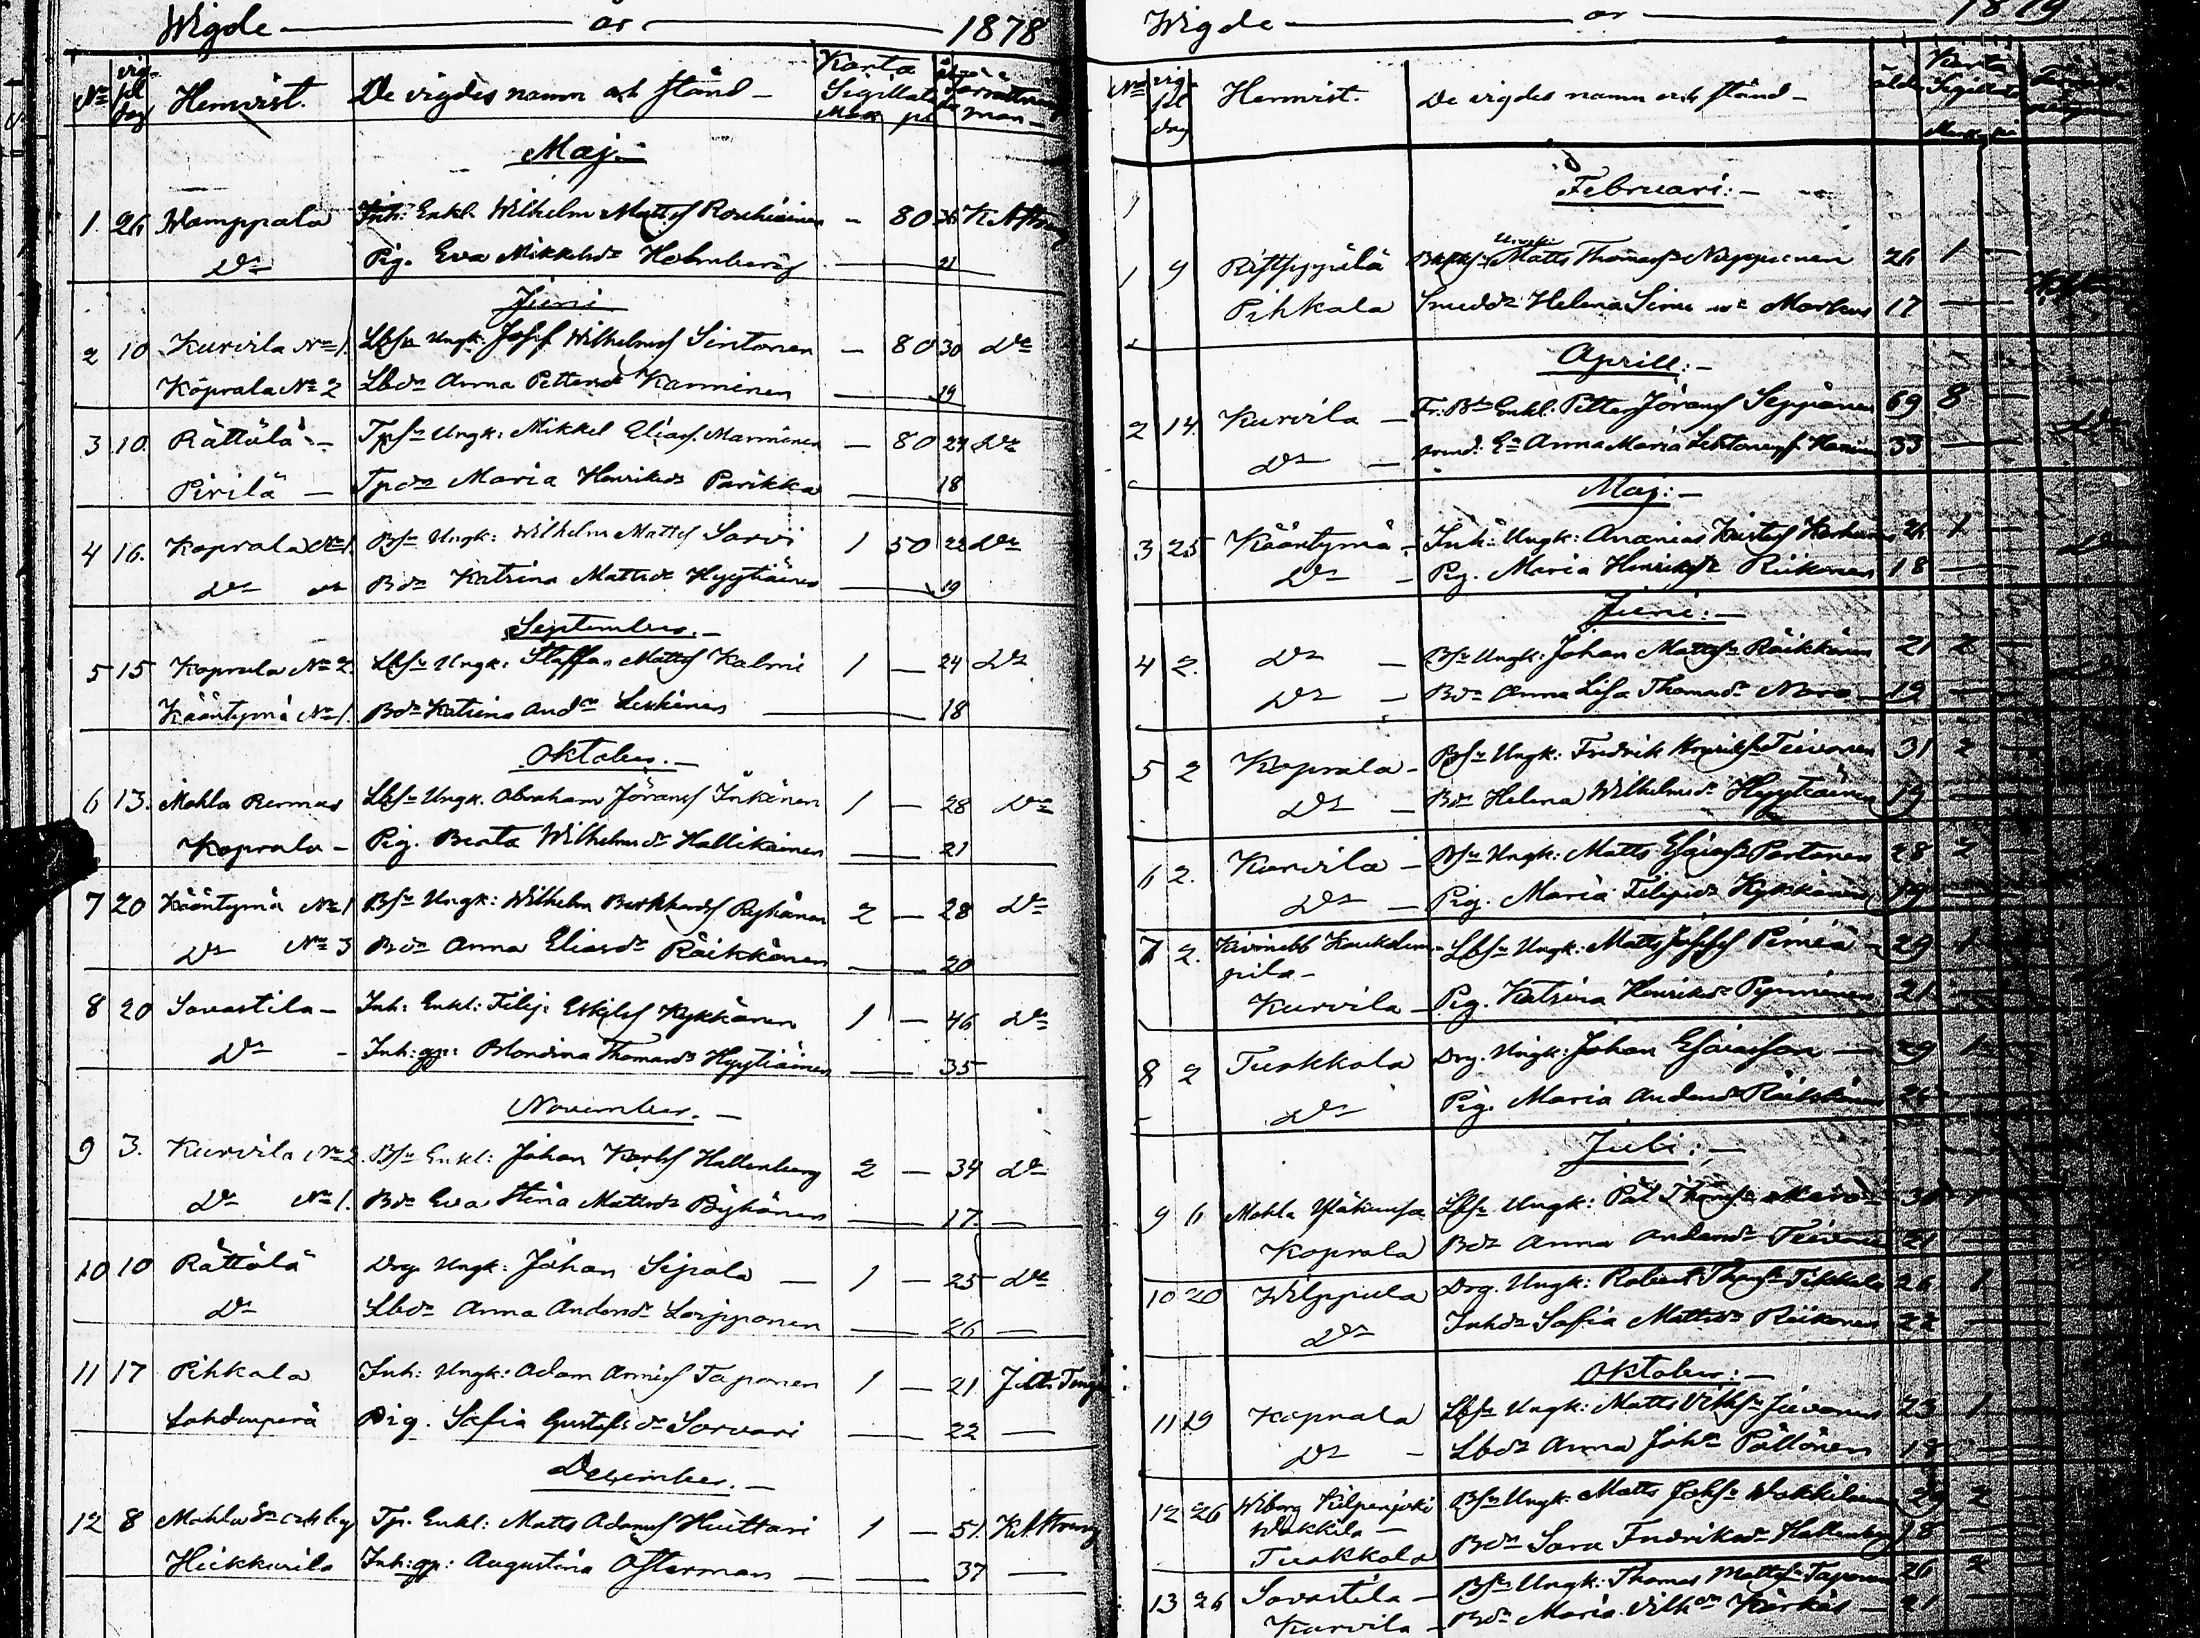 Wigde — år — 1878
No vig sel dag Hemvist. De vigdes namn och stånd — Karta Sigillata Mark pi ålder
Maj. —
1. 26 Wamppala Inh: Enkl. Wilhelm Mattsf — 80
Do Pig. Eva Mikkelsdr Holmberg — 21
Juni
2 10 Kurvila No 1. Lbsn Ungk: Josef Wilhelmsf Sintonen — 80 30 Do
Koprala No 2 Lbdr Anna Pettersdr Karminen — 19
3 10. Rättälä — Tpsn Ungk: Mikkel Eliasf. Manninen — 80 24 Do
Pirilä — Tpdr Maria Henriksdr Parikka — 18
4 16. Koprala No 1. Bsn Ungk: Wilhelm Mattsf Sarvi 1 50 22 Do
Do Bdr Katrina Mattsdr Hyytiäinen — 19
September. —
5 15 Koprala No 2. Lbsn Ungk: Staffan Mattsf Kalmi 1 — 24 Do
Kääntymä No 1. Bdr Katrina Anddr Leskinen — 18
Oktober. —
6 13. Mohla Permas Lbsn Ungk. Abraham Jöransf Inkinen 1 — 28 Do
Koprala — Pig. Berta Wilhelmsdr Hallikainen — 21
7 20 Kääntymä No 1 Bsn Ungk: Wilhelm Pyhänen 2 — 28 Do
Do No 3 Bdr Anna Eliasdr Räikkönen — 20
8 20 Savastila — Inh: Enkl: Filip Eskilsf Kykkänen 1 — 46 Do
Do — Inh: gp: Blondina Thomasdr Hyytiäinen — 35
November. —
9 3. Kurvila No 2. Bsn Enkl: Johan Karlsf Hallenberg 2 — 34 Do
Do No 1. Bdr Eva Stina Mattsdr Pyhänen — 17. —
10 10 Rättälä Drg Ungk: Johan Sipola — 1 — 25 Do
Do Lbdr Anna Andersdr Loipponen — 26 —
11 17 Pihkala Inh: Ungk: Adam Taponen 1 — 21
Lahdenperä Pig. Sofia Gustafsdr Sorvari — 22 —
December. —
12 8 Mohla Tp. Enkl: Matts Adamsf Huittari 1 — 51.
Heikkurila Inh: gp: Augustina Österman — 37 —
Wigde — år — 1879
No vig sel dag Hemvist. De vigdes namn och stånd — ålder Karta Sigillata
Februari: —
1 9 Ristseppälä Ungk: Matts Thomasf Nuppunen 26 1 —
Pihkala Smeddr Helena 17 —
Aprill: —
2 14. Kurvila — Fr. Bdr Enkl. Petter Jöransf Seppänen 69 8 —
Do — Anna Maria 33 — Do
Maj: —
3 25 Kääntymä — Inh: Ungk: Ananias 26 1 —
Do — Pig. Maria Henriksdr Riikonen 18 —
Juni: —
4 2. Do — Bsn Ungk: Johan Mattsf Räikkönen 21 2 —
Do — Bdr Anna Lisa Thomasdr Naro — 19 —
5 2 Koprala — Bsn Ungk: Fredrik Teivonen 31 2 —
Do — Bdr Helena Wilhelmsdr Hyytiäinen 19 —
6 2. Kurvila — Bsn Ungk: Matts Esaiasf Partanen 28 2 —
Do — Pig. Maria Filipsdr Kykkänen 19 —
7 2. Kivinebb
pila — Lbsn Ungk: Matts Josefsf Pimiä — 29 1 —
Kurvila — Pig. Katrina Henriksdr Pynninen 21 —
8 2 Tuokkola Drg. Ungk: Johan Esaiasson — 29 1 —
Do Pig. Maria Andersdr Räikkönen 26 —
Juli: —
9 6 Mohla Lbsn Ungk: Pål Thomsf
Koprala Bdr Anna Andersdr Teivonen 21 —
10 20 Wilppula Drg. Ungk: Robert Tikkala 26 1
Do Inhdr Sofia Mattsdr Riikonen 22 —
Oktober: —
11 19 Koprala Lbsn Ungk: Matts 23 1 —
Do — Lbdr Anna Johdr Pöllönen 18 —
12 26 Wiborg Kilpenjoki
Wakkila — Bsn Ungk: Matts Johsn Wakkilainen 29 2
Tuokkola Bdr Sara Fredriksdr Hallenberg 18 —
13 26 Savastila — Bsn Ungk: Thomas Mattsf Taponen 26 2
Kurvila — Bdr Maria Vilhdr Kärkäs — 21 —